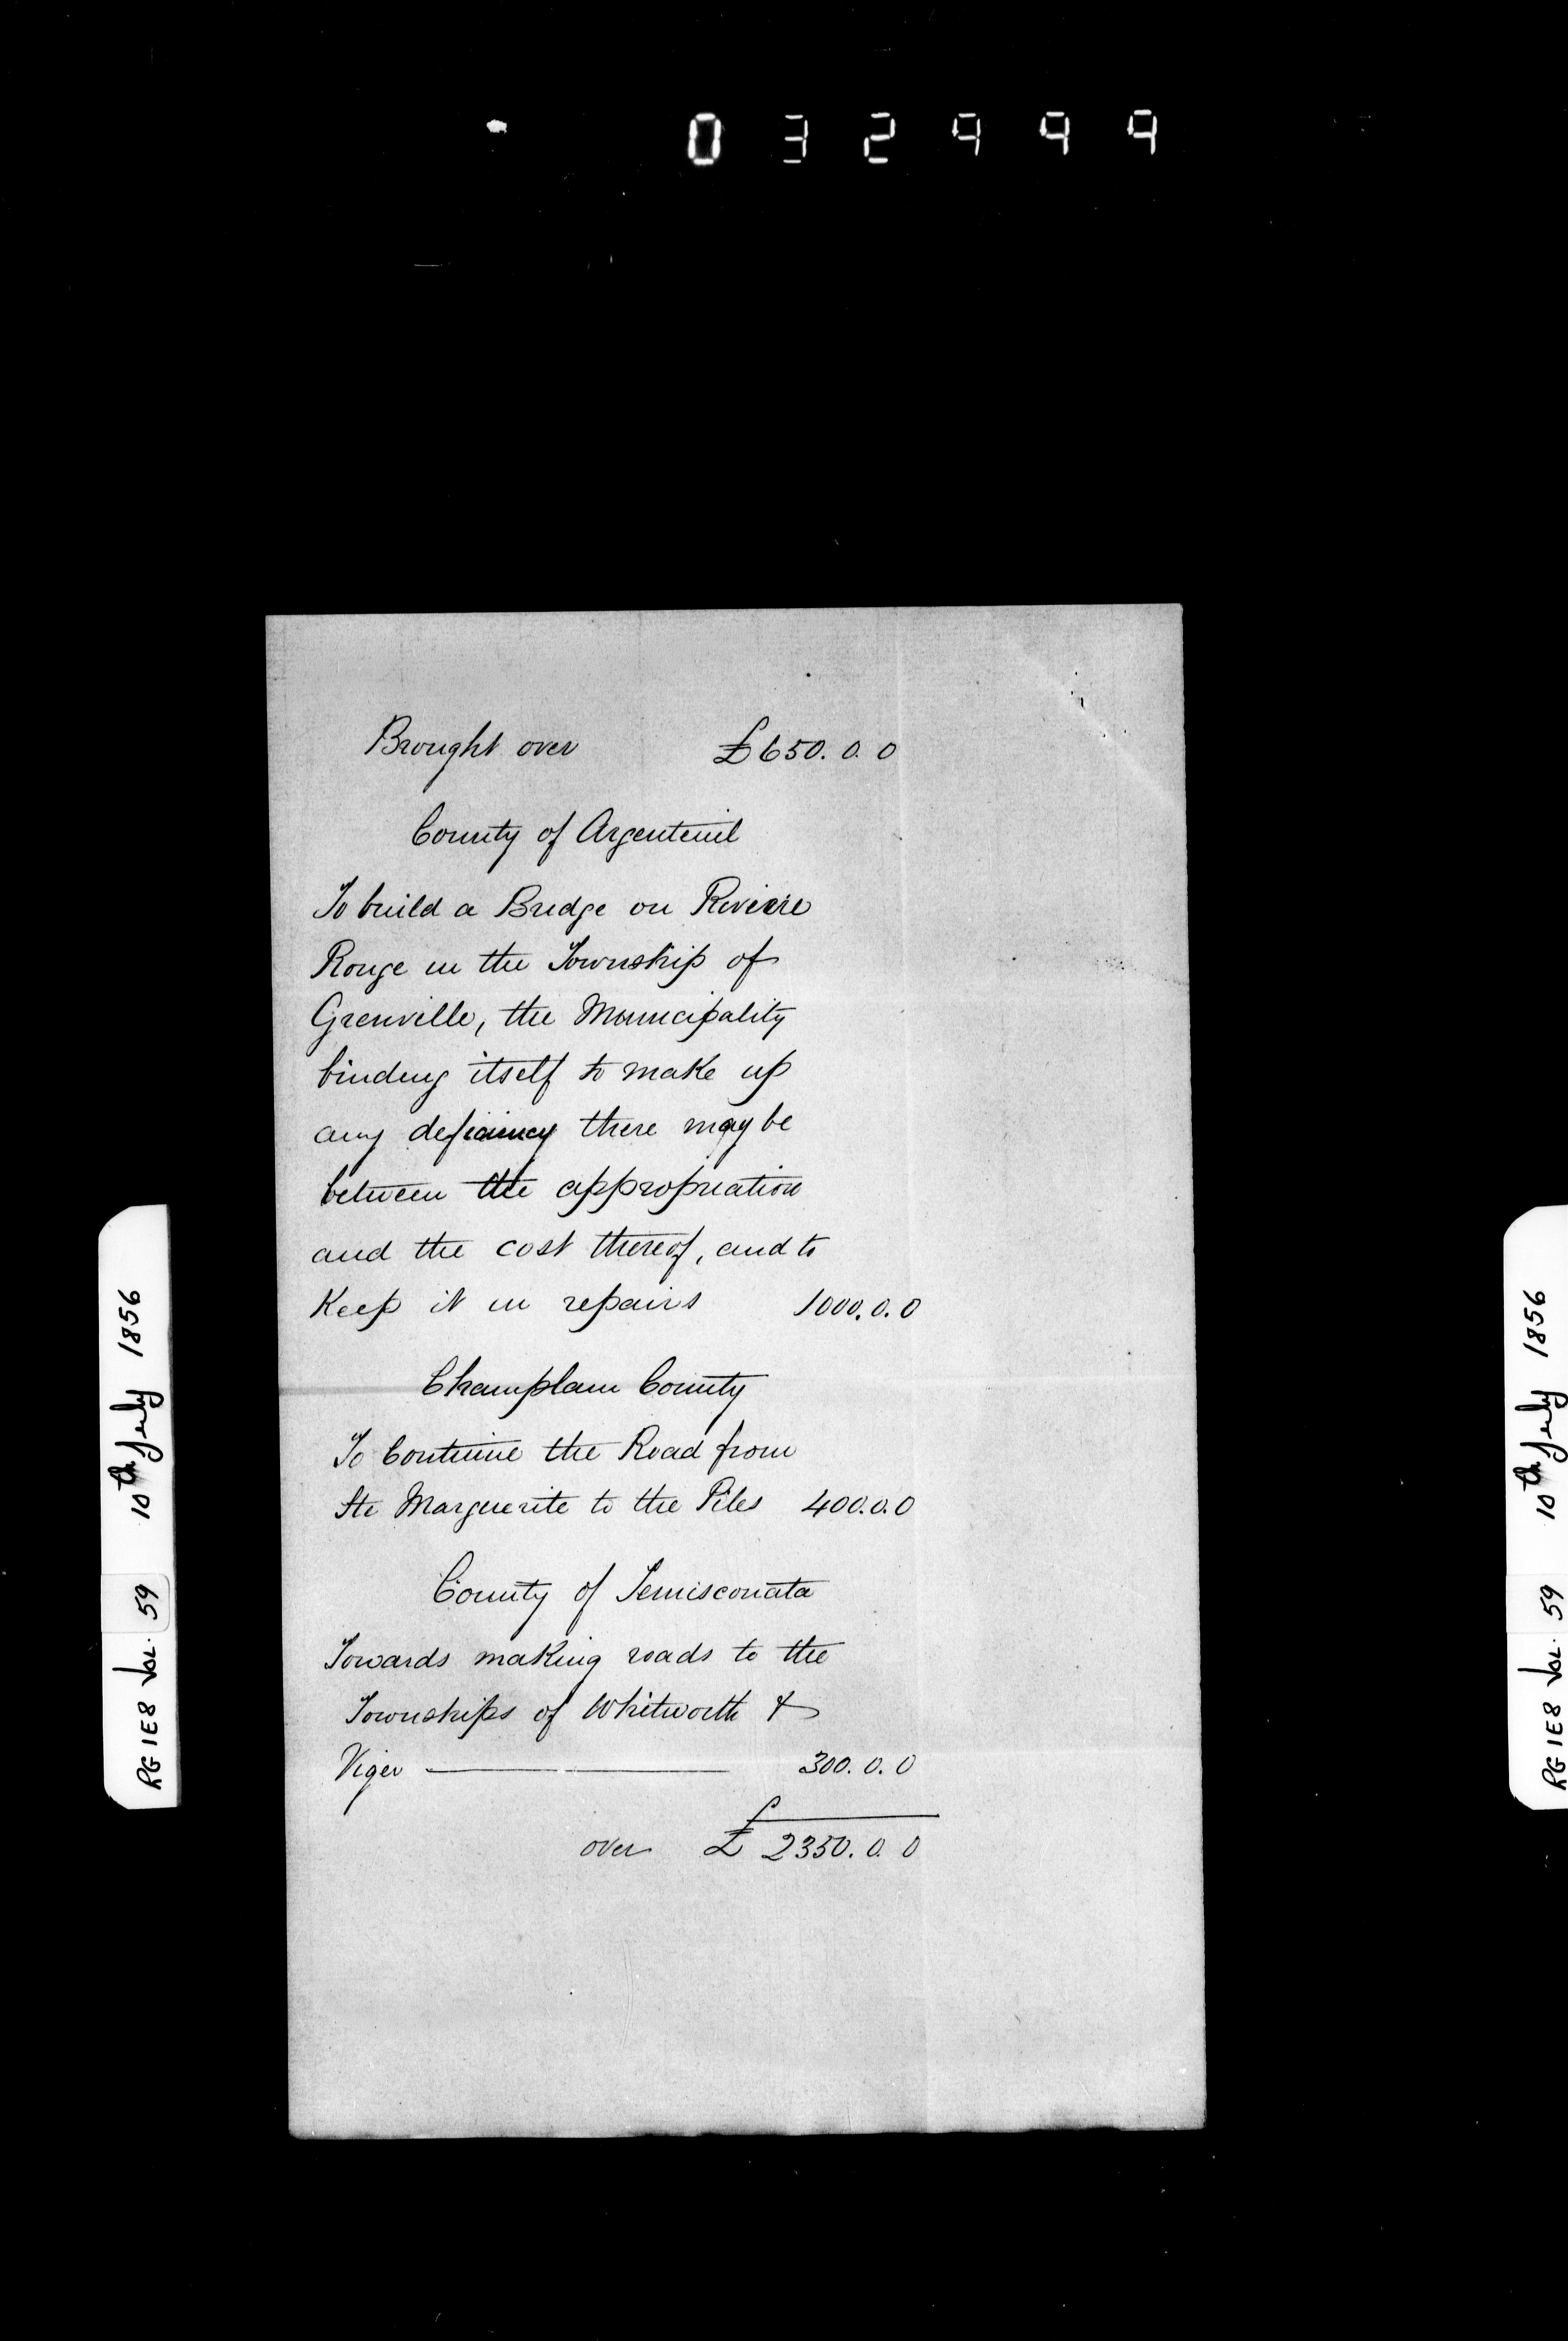 032999
Brought over £650. 0. 0
County of Argenteuil
To build a Bridge on Riviere
Rouge in the Township of
Grenville, the Municipality
binding itself to make up
any deficiency there may be
between the appropriation
and the cost thereof, and to
Keep it in repairs 1000. 0. 0
Champlain County
To Continue the Road from
Ste Marguerite to the Piles 400. 0. 0
County of Temisconata
Towards making roads to the
Townships of Whitworth &
Viger — 300. 0. 0
over £ 2350. 0. 0
RG 1E8 Vol. 59 10th July 1856
RG 1E8 Vol. 59 10th July 1856